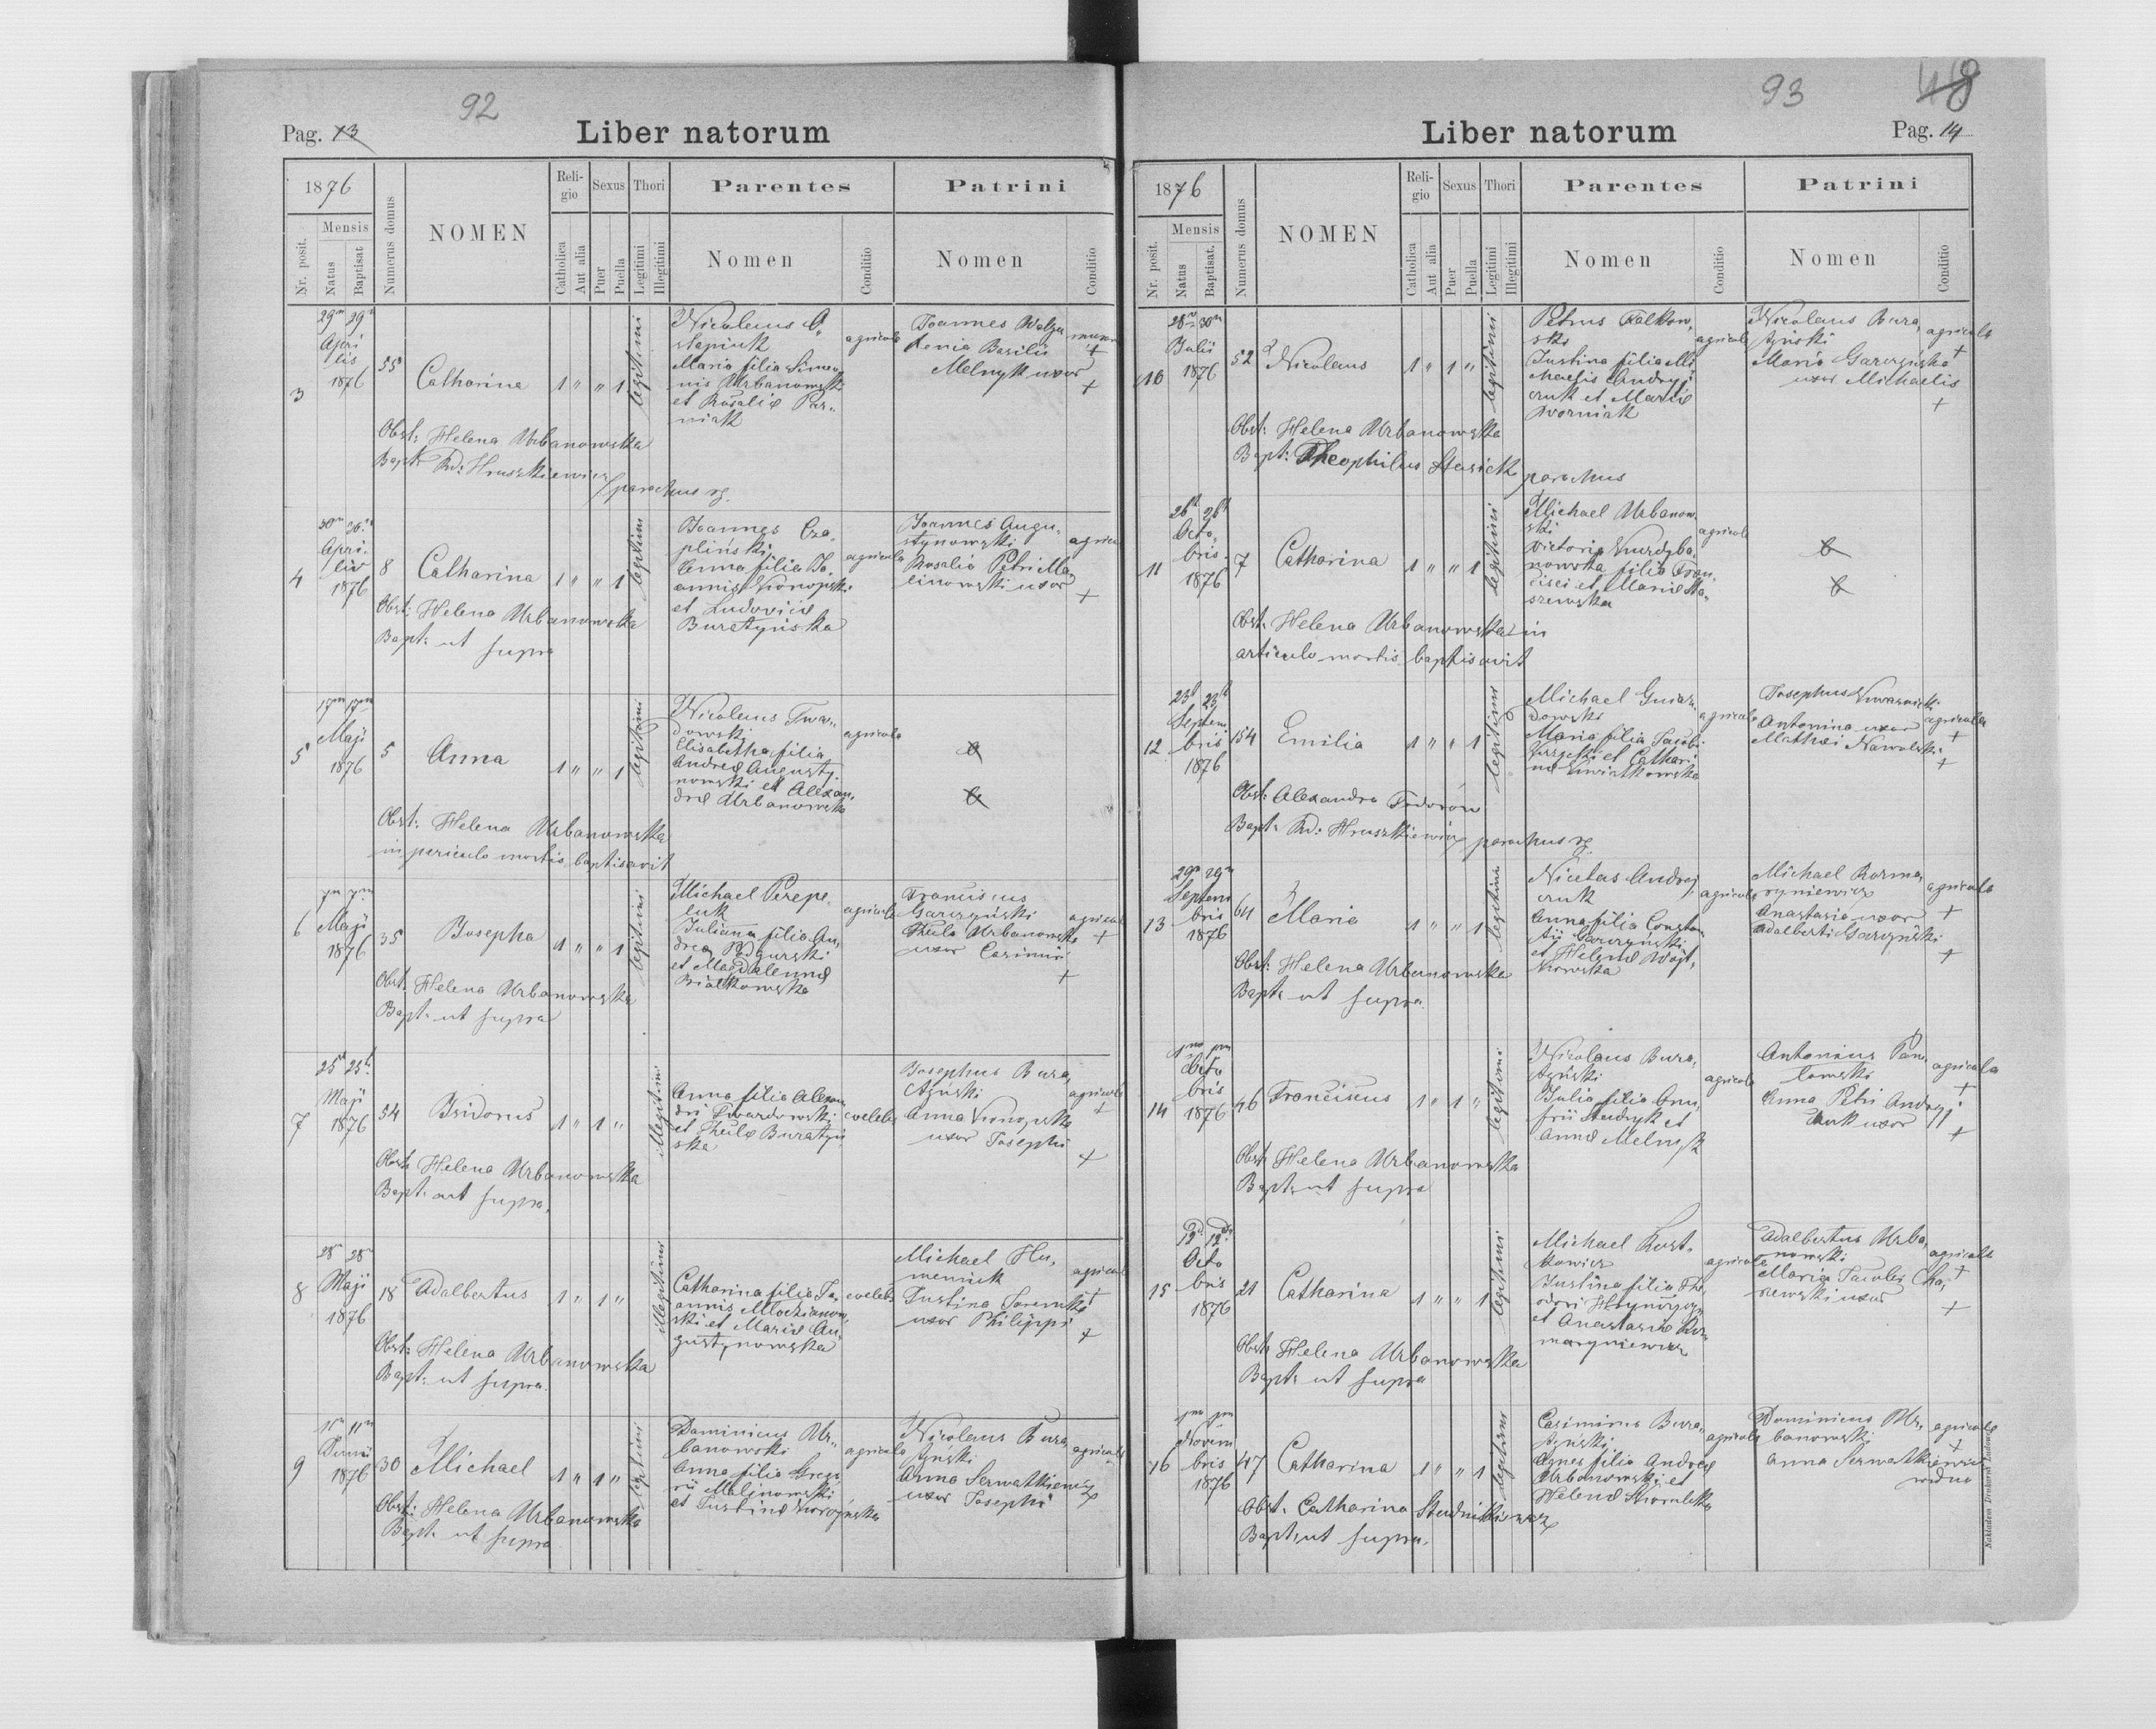 92
Pag. 13
Liber natorum
1876
Nr. posit.
Mensis
Natus
Baptisat
Numerus domus
NOMEN
Religio
Catholica
Aut alia
Sexus
Puer
Puella
Thori
Legitimi
Illegitimi
Parentes
Nomen
Conditio
Patrini
Nomen
Conditio
3
29n 29n
Apri
lis
1876
55
Catharina
1 " " 1
legitimi
Nicolaus O,
stapiuk
Maria filia Simeo,
nis Urbanowski
et Rosaliæ Par,
niak
agricola
Joannes
Xenia Basilii
Melnyk uxor
+
+
Obst: Helena Urbanowska
Bapt: Rd: Hruszkiewicz
parochus
4
30n 30n
Apri
lis
1876
8
Catharina
1 " " 1
legitimi
Joannes Cza,
pliński
Anna filia Jo,
annis Kronopski
et Ludoviciæ
Buratyńska
agricola
Joannes Augu,
stynowski
Rosalia Petri Ma,
linowski uxor
agrico
+
Obst: Helena Urbanowska
Bapt: ut supra
5
17m 17m
Maji
1876
5
Anna
1 " " 1
legitimi
Nicolaus Twar,
dowski
Elisabetha filia
Andreæ Augusty,
nowski et Alexan,
dræ Urbanowska
agricola
Obst: Helena Urbanowska
in periculo mortis baptisavit
6
Maji
1876
35
Josepha
1 " " 1
legitimi
Michael Perepe,
luk
Juliana filia An,
dreæ Podgurski
et Magdalennæ
Białkowska
agricola
Franciscus
Garczyński
Thecla Urbanowska
uxor Casimiri
agricol
+
+
Obst: Helena Urbanowska
Bapt: ut supra
7
25t 25t
Maji
1876
54
Isidorus
1 " 1 "
illegitimi
Anna filia Alexan,
dri Twardowski
et Theclæ Buratyń
ska
coelebs
Josephus Bura,
tyński
Anna Kronopska
uxor Josephi
agricola
+
+
Obst: Helena Urbanowska
Bapt: ut supra
8
28n 28n
Maji
1876
18
Adalbertus
1 " 1 "
illegitimi
Catharina filia Jo,
annis Młodzianow,
ski et Mariæ Au,
gustynowska
coelebs
Michael Hu,
meniuk
Justina Jaremko
uxor Philippi
agricol
+
+
Obst: Helena Urbanowska
Bapt: ut supra
9
11m 11m
Junii
1876
30
Michael
1 " 1 "
legitimi
Dominicus Ur,
banowski
Anna filia Grego
rii Malinowski
et Justinæ
agricola
Nicolaus Bura,
tyński
Anna Serwatkiewicz
uxor Josephi
agricola
Obst: Helena Urbanowska
Bapt: ut supra
93
48
Liber natorum
Pag. 14
1876
Nr. posit.
Mensis
Natus
Baptisat.
Numerus domus
NOMEN
Religio
Catholica
Aut alia
Sexus
Puer
Puella
Thori
Legitimi
Illegitimi
Parentes
Nomen
Conditio
Patrini
Nomen
Conditio
10
28n 30n
Julii
1876
52
Nicolaus
1 " 1 "
legitimi
Petrus Falkow,
ski
Justina filia Mi
chaelis Andryj
czuk et Mariæ
Worniak
agricola
Nicolaus Bura,
tyński
Maria Garczyńska
uxor Michaelis
agricola
+
+
Obst: Helena Urbanowska
Bapt: Theophilus
parochus
11
26t 26t
Octo,
bris
1876
7
Catharina
1 " " 1
legitimi
Michael Urbanow,
ski
Victoria Kurdyba,
nowska filia Fran,
cisci et Mariæ Sta,
szewska
agricola
Obst: Helena Urbanowska in
articulo mortis baptisavit
12
23t 23t
Septem
bris
1876
154
Emilia
1 " " 1
legitimi
Michael Gniaz
dowski
Maria filia Jacobi
et Cathari
næ Kwiatkowska
agricola
Josephus
Antonina uxor
Mathæi Nawolski
agricola
+
+
Obst: Alexandra Fedorów
Bapt: Rd: Hruszkiewicz parochus
13
29n 29n
Septem
bris
1876
64
Maria
1 " " 1
legitimi
Nicetas Andryj,
czuk
Anna filia Constan
tij Garczyński
et Helenæ Wojt,
kowska
agricola
Michael Karma,
ryniewicz
Anastasia uxor
Adalberti Garczyński
agricola
+
+
Obst: Helena Urbanowska
Bapt: ut supra
14
Octo
bris
1876
46
Franciscus
1 " 1 "
legitimi
Nicolaus Bura,
tyński
Julia filia Onu,
frii Studnyk et
Annæ Melnyk
agricola
Antonius Paw,
łowski
Anna Petri Andryj
czuk uxor
agricola
+
+
Obst: Helena Urbanowska
Bapt: ut supra
15
12d 12d
Octo
bris
1876
21
Catharina
1 " " 1
legitimi
Michael Kost,
kowicz
Justina filia The,
odori
et Anastasiæ Kar,
maryniewicz
agricola
Adalbertus Urba,
nowski
Maria Jacobi Cha,
newski uxor
agricola
+
+
Obst: Helena Urbanowska
Bapt: ut supra
16
Novem
bris
1876
47
Catharina
1 " " 1
legitimi
Casimirus Bura,
tyński
Agnes filia Andreæ
Urbanowski et
Helenæ
agricola
Dominicus Ur,
banowski
Anna Serwatkiewicz
vidua
agricola
+
Obst: Catharina
Bapt: ut supra